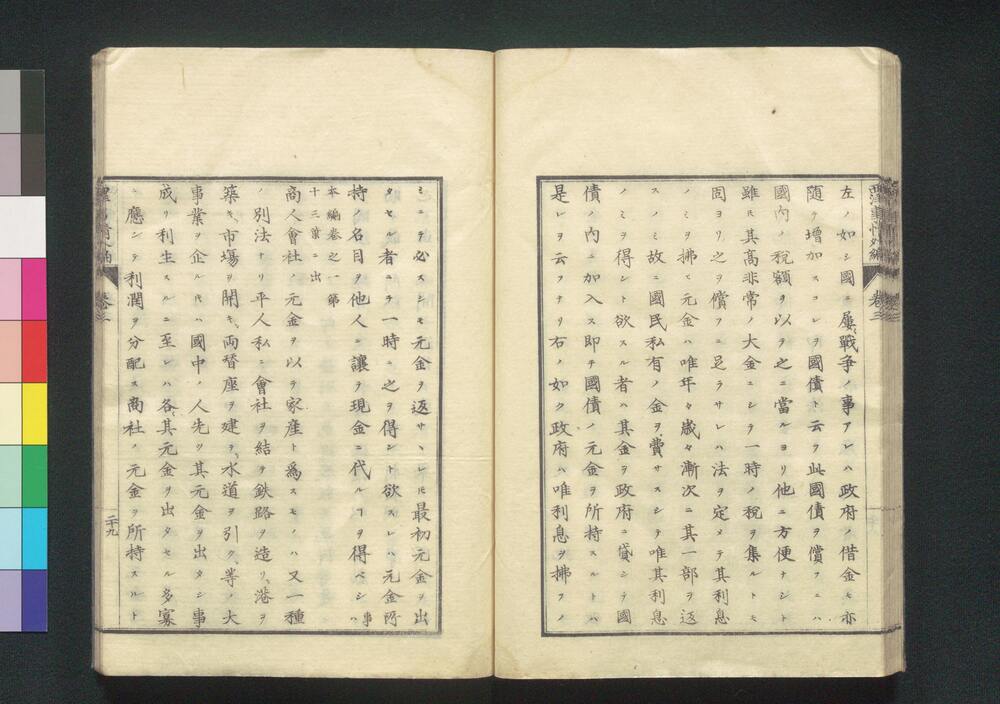 左ノ如シ國ニ屢〻戰争ノ事アレハ政府ノ借金モ亦
随ヲ増加スコレヲ國債ト云フ此國債ヲ償フニハ
國内ノ税額ヲ以テ之ニ當ルヨリ他ニ方便ナシト
雖𪜈其高非常ノ大金ニシテ一時ノ税ヲ集ルトモ
固ヨリ之ヲ償フニ足ラサレハ法ヲ定メテ其利息
ノミヲ拂ヒ元金ハ唯年々歳々漸次ニ其一部ヲ返
スノミ故ニ國民私有ノ金ヲ費サスシテ唯其利息
ノミヲ得ント欲スル者ハ其金ヲ政府ニ貸シテ國
債ノ内ニ加入ス即チ國債ノ元金ヲ所持スルトハ
是レヲ云フナリ右ノ如ク政府ハ唯利息ヲ拂フノ
西洋事情外編
卷三
ミニテ必スシモ元金ヲ返サヽレ𪜈最初元金ヲ出
タセル者ニテ一時ニ之ヲ得ント欲スレハ元金所
持ノ名目ヲ他人ニ讓テ現金ニ代ルヿヲ得ベシ事ハ
本編卷之一第
十三葉ニ出
商人會社ノ元金ヲ以テ家産ト為スモノハ又一種
ノ別法ナリ平人私ニ會社ヲ結テ鉄路ヲ造リ、港ヲ
築キ、市塲ヲ開キ、両替座ヲ建テ、水道ヲ引ク、等ノ大
事業ヲ企ルトハ國中ノ人先ツ其元金ヲ出タシ事
成リ利生スルニ至レハ各〻其元金ヲ出タセル多寡
ニ應シテ利潤ヲ分配ス商社ノ元金ヲ所持スルト
卷三
二十九